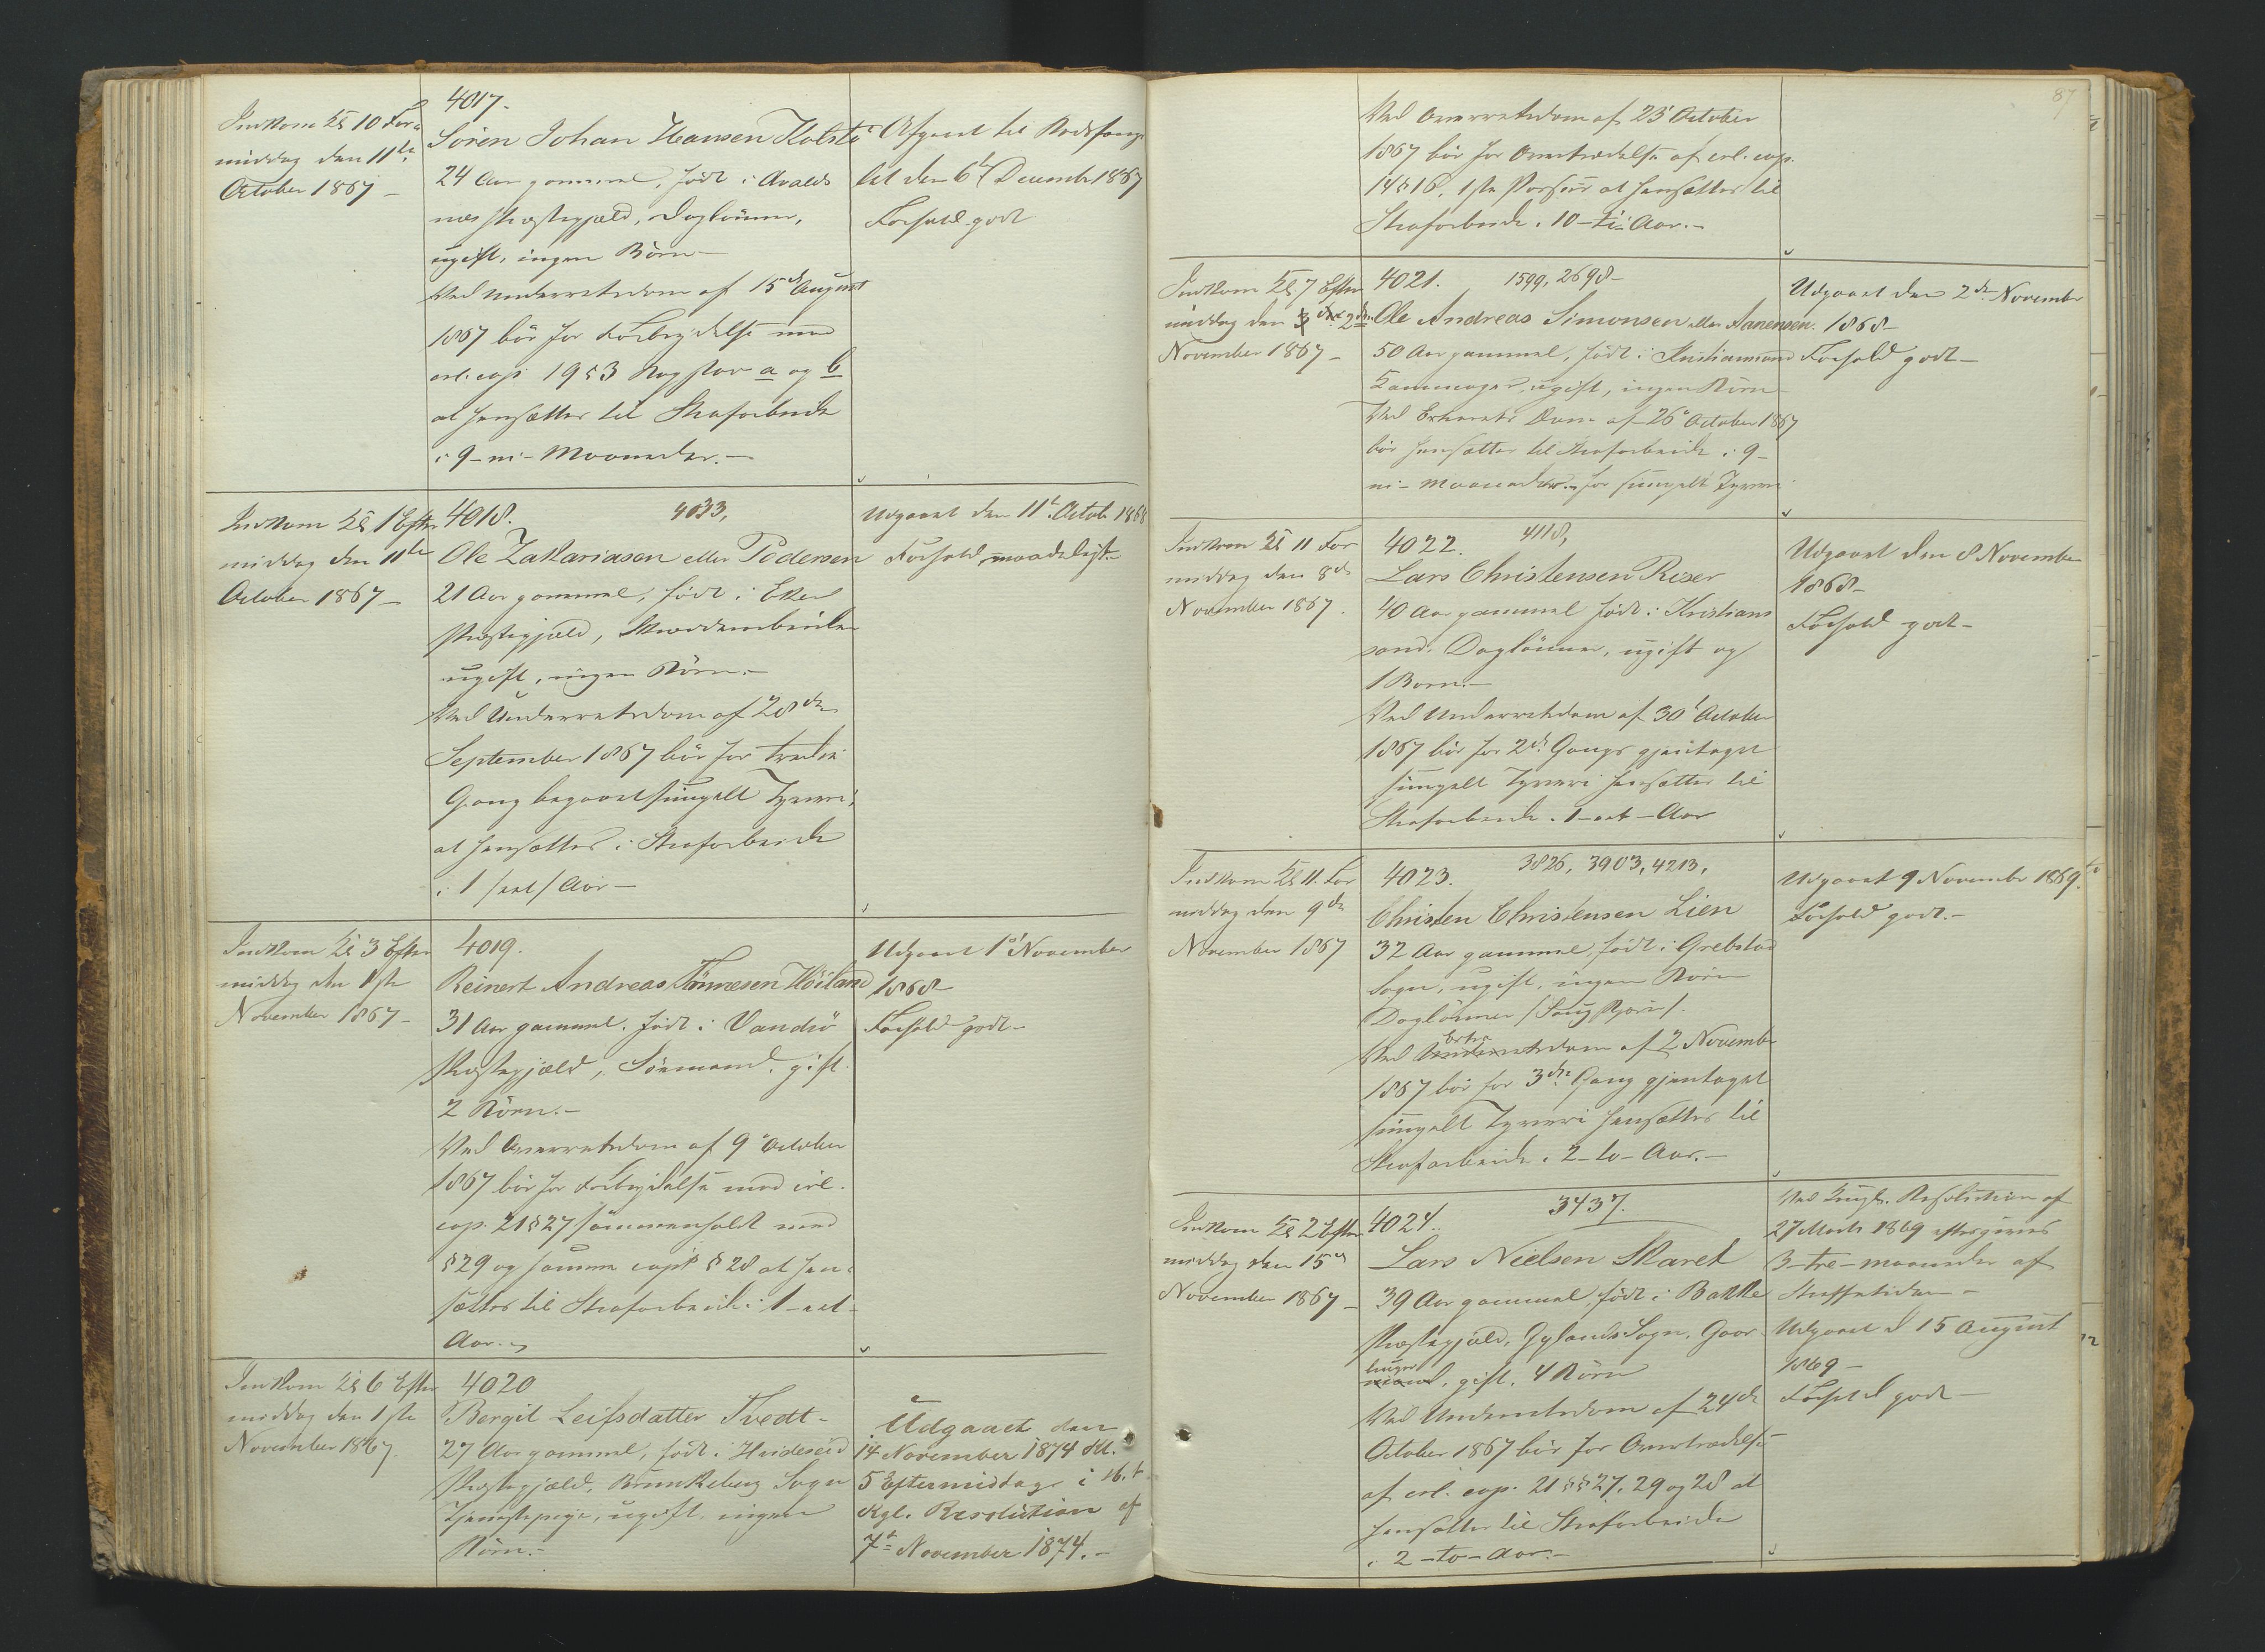 Indkom Kl 10 For-
middag den 11te
October 1867 –
4017.
Sören Johan Hansen Kolstö
24 Aar gammel, födt i Avalds
næs Præstegjæld, Daglönner,
ugift, ingen Börn –
Ved Underretsdom af 15de August
1867 bör for Forbrydelse mod
crl. cap. 19 § 3 Bogstav a og b
at hensættes til Strafarbeide
i 9 – ni – Maaneder. –
Afgaaet til Bodsfæng-
let den 6te December 1867
Forhold godt
Indkom Kl 1 Efter
middag den 11te
October 1867 –
4018. 4033,
Ole Zakariasen eller Pedersen
21 Aar gammel, födt i Eker
Præstegjæld,
ugift, ingen Börn. –
Ved Underretsdom af 28de
September 1867 bör for tredie
Gang begaaet simpelt Tyveri,
at hensættes i Strafarbeide
i 1 /eet/ Aar –
Udgaaet den 11te Octob. 1868
Forhold maadeligt. –
Indkom Kl 3 Efter
middag den 1ste
November 1867 –
4019.
Reinert Andreas Tönnesen Höiland
31 Aar gammel, födt i Vandsö
Præstegjæld, Sömand, gift
2 Börn. –
Ved Overretsdom af 9de October
1867 bör for Forbrydelse mod crl.
cap. 21 § 27 sammenholdt med
§ 29 og samme capt § 28 at hen-
sættes til Strafarbeide i 1 – eet –
Aar. –
Udgaaet 1ste November
1868
Forhold godt –
Indkom Kl 6 Efter
middag den 1ste
November 1867.
4020
Bergit Leifsdatter Tvedt –
27 Aar gammel, födt i Hvideseid
Præstegjæld, Brunkeberg Sogn
Tjenestepige, ugift, ingen
Börn. –
Udgaaet den
14 November 1874 Kl.
5 Eftermiddag i
Kgl. Resolution af
7de November 1874. –
87
Ved Overretsdom af 23de October
1867 bör for Overtrædelse af crl. cap.
14 § 16, 1ste at hensættes til
Strafarbeide i 10 – ti – Aar. –
Indkom Kl 7 Efter
middag den 2den
November 1867 –
4021. 1599, 2698 –
Ole Andreas Simonsen eller Aanensen.
50 Aar gammel, födt i Kristianssand
ugift, ingen Börn
Ved Extrarets Dom af 26de October 1867
bör hensættes til Strafarbeide i 9 –
ni – Maaneder – for simpelt Tyveri
Udgaaet den 2de November
1868 –
Forhold godt –
Indkom Kl 11 For
middag den 8de
November 1867.
4022. 4118,
Lars Christensen Riser
40 Aar gammel födt i Kristians
sand, Daglönner, ugift og
1 Barn. –
Ved Underretsdom af 30te October
1867 bör for 2den Gangs gjentaget
simpelt Tyveri hensættes til
Strafarbeide i 1 – eet – Aar
Udgaaet den 8 November
1868 –
Forhold godt –
Indkom Kl 11 For
middag den 9de
November 1867
4023. 3826, 3903, 4213,
Christen Christensen Lien
32 Aar gammel, födt i Grebstad
Sogn, ugift, ingen Börn
Daglönner
Extra
Ved Underretsdom af 2 November
1867 bör for 3die Gang gjentaget
simpelt Tyveri hensættes til
Strafarbeide i 2 – to – Aar. –
Udgaaet 9 November 1869.
Forhold godt. –
Indkom Kl 2 Efter
middag den 15de
November 1867 –
4024. 3437.
Lars Nielsen Skaret
39 Aar gammel, födt i Bakke
Præstegjæld, Gylands Sogn, Gaar
bruger
mand, gift, 4 Börn
Ved Underretsdom af 24de
October 1867 bör for Overtrædelse
af crl. cap. 21 §§ 27, 29 og 28 at
hensættes til Strafarbeide
i 2 – to – Aar. –
Ved Kongl. Resolution af
27 Marts 1869 eftergives
3 – tre – maaneder af
Straffetiden –
Udgaaet d 15 August
1869 –
Forhold godt –